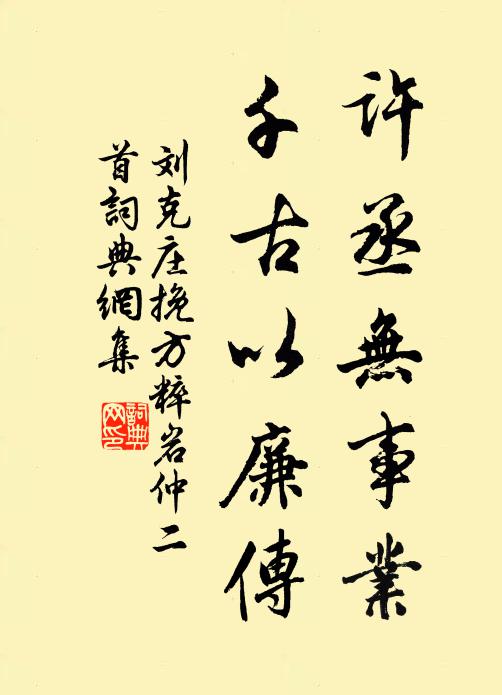 許丞無事業
千古以廉傳
刘克庄挽方粹岩仲二
首詞典網集
詞典网印